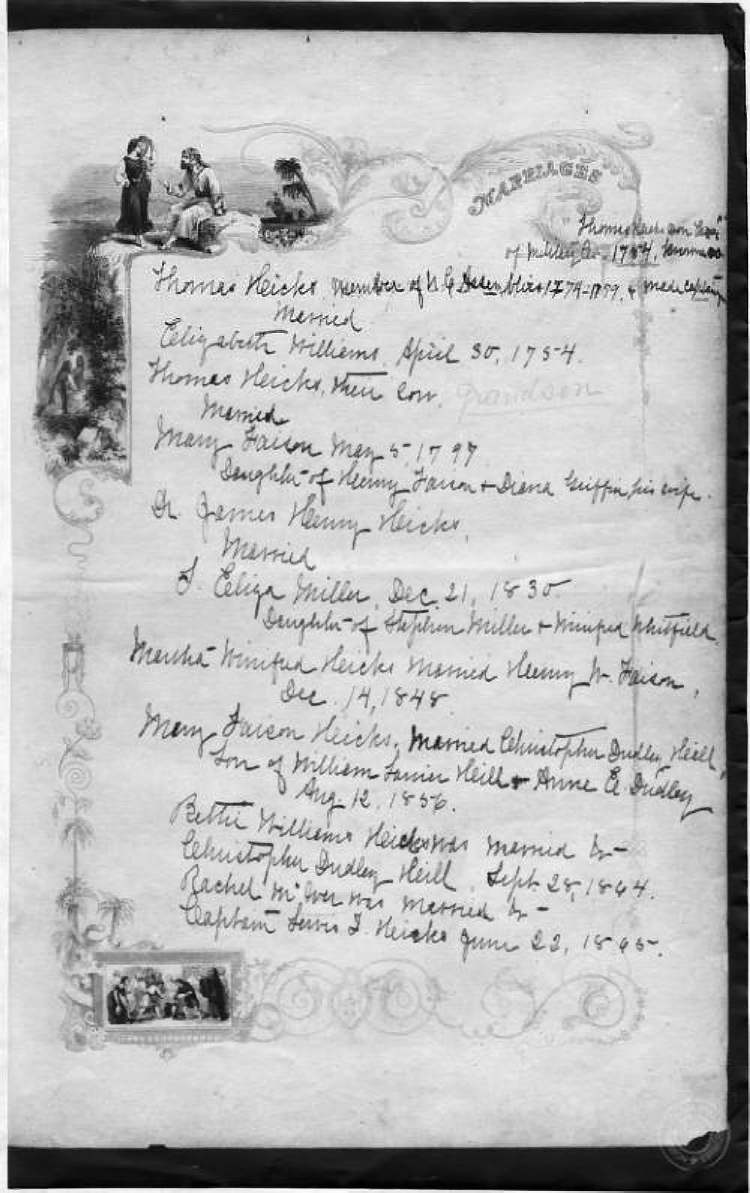 MARRIAGES
Thomas
of Co. 1754,
Thomas Hicks, member of N C Assemblies 1774-1779, & made captain
Married
Elizabeth Williams, April 30, 1754.
Thomas Hicks, their son, grandson
Married
Mary Faison May 5, 1797
Daughter of Henry Faison & Diana Griffin, his wife.
Dr. James Henry Hicks,
Married
S. Eliza Miller, Dec. 21, 1830
Daughter of Stephen Miller & Winifred Whitfield.
Martha Winifred Hicks Married Henry W. Faison,
Dec. 14, 1848.
Mary Faison Hicks, Married Christopher Dudley Hill,
Son of William Lanier Hill & Anne E. Dudley
Aug. 12, 1856.
Bettie Williams Hicks was married to
Christopher Dudley Hill, Sept. 28, 1864.
Rachel McIver was married to
Captain Lewis T. Hicks June 22, 1865.